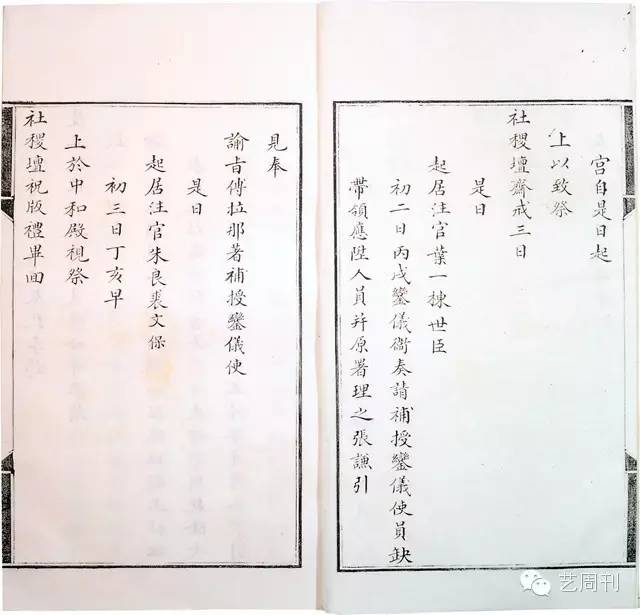 宮自是日起
上以致祭
社稷壇齋戒三日
是日
起居注官葉一棟世臣
初二日丙戌鑾儀衛奏請補授鑾儀使員缺
帶領應陞人員并原署理之張謙引
見奉
諭旨傅拉那著補授鑾儀使
是日
起居注官朱良裘文保
初三日丁亥早
上於中和殿視祭
社稷壇祝版禮畢回
艺周刊